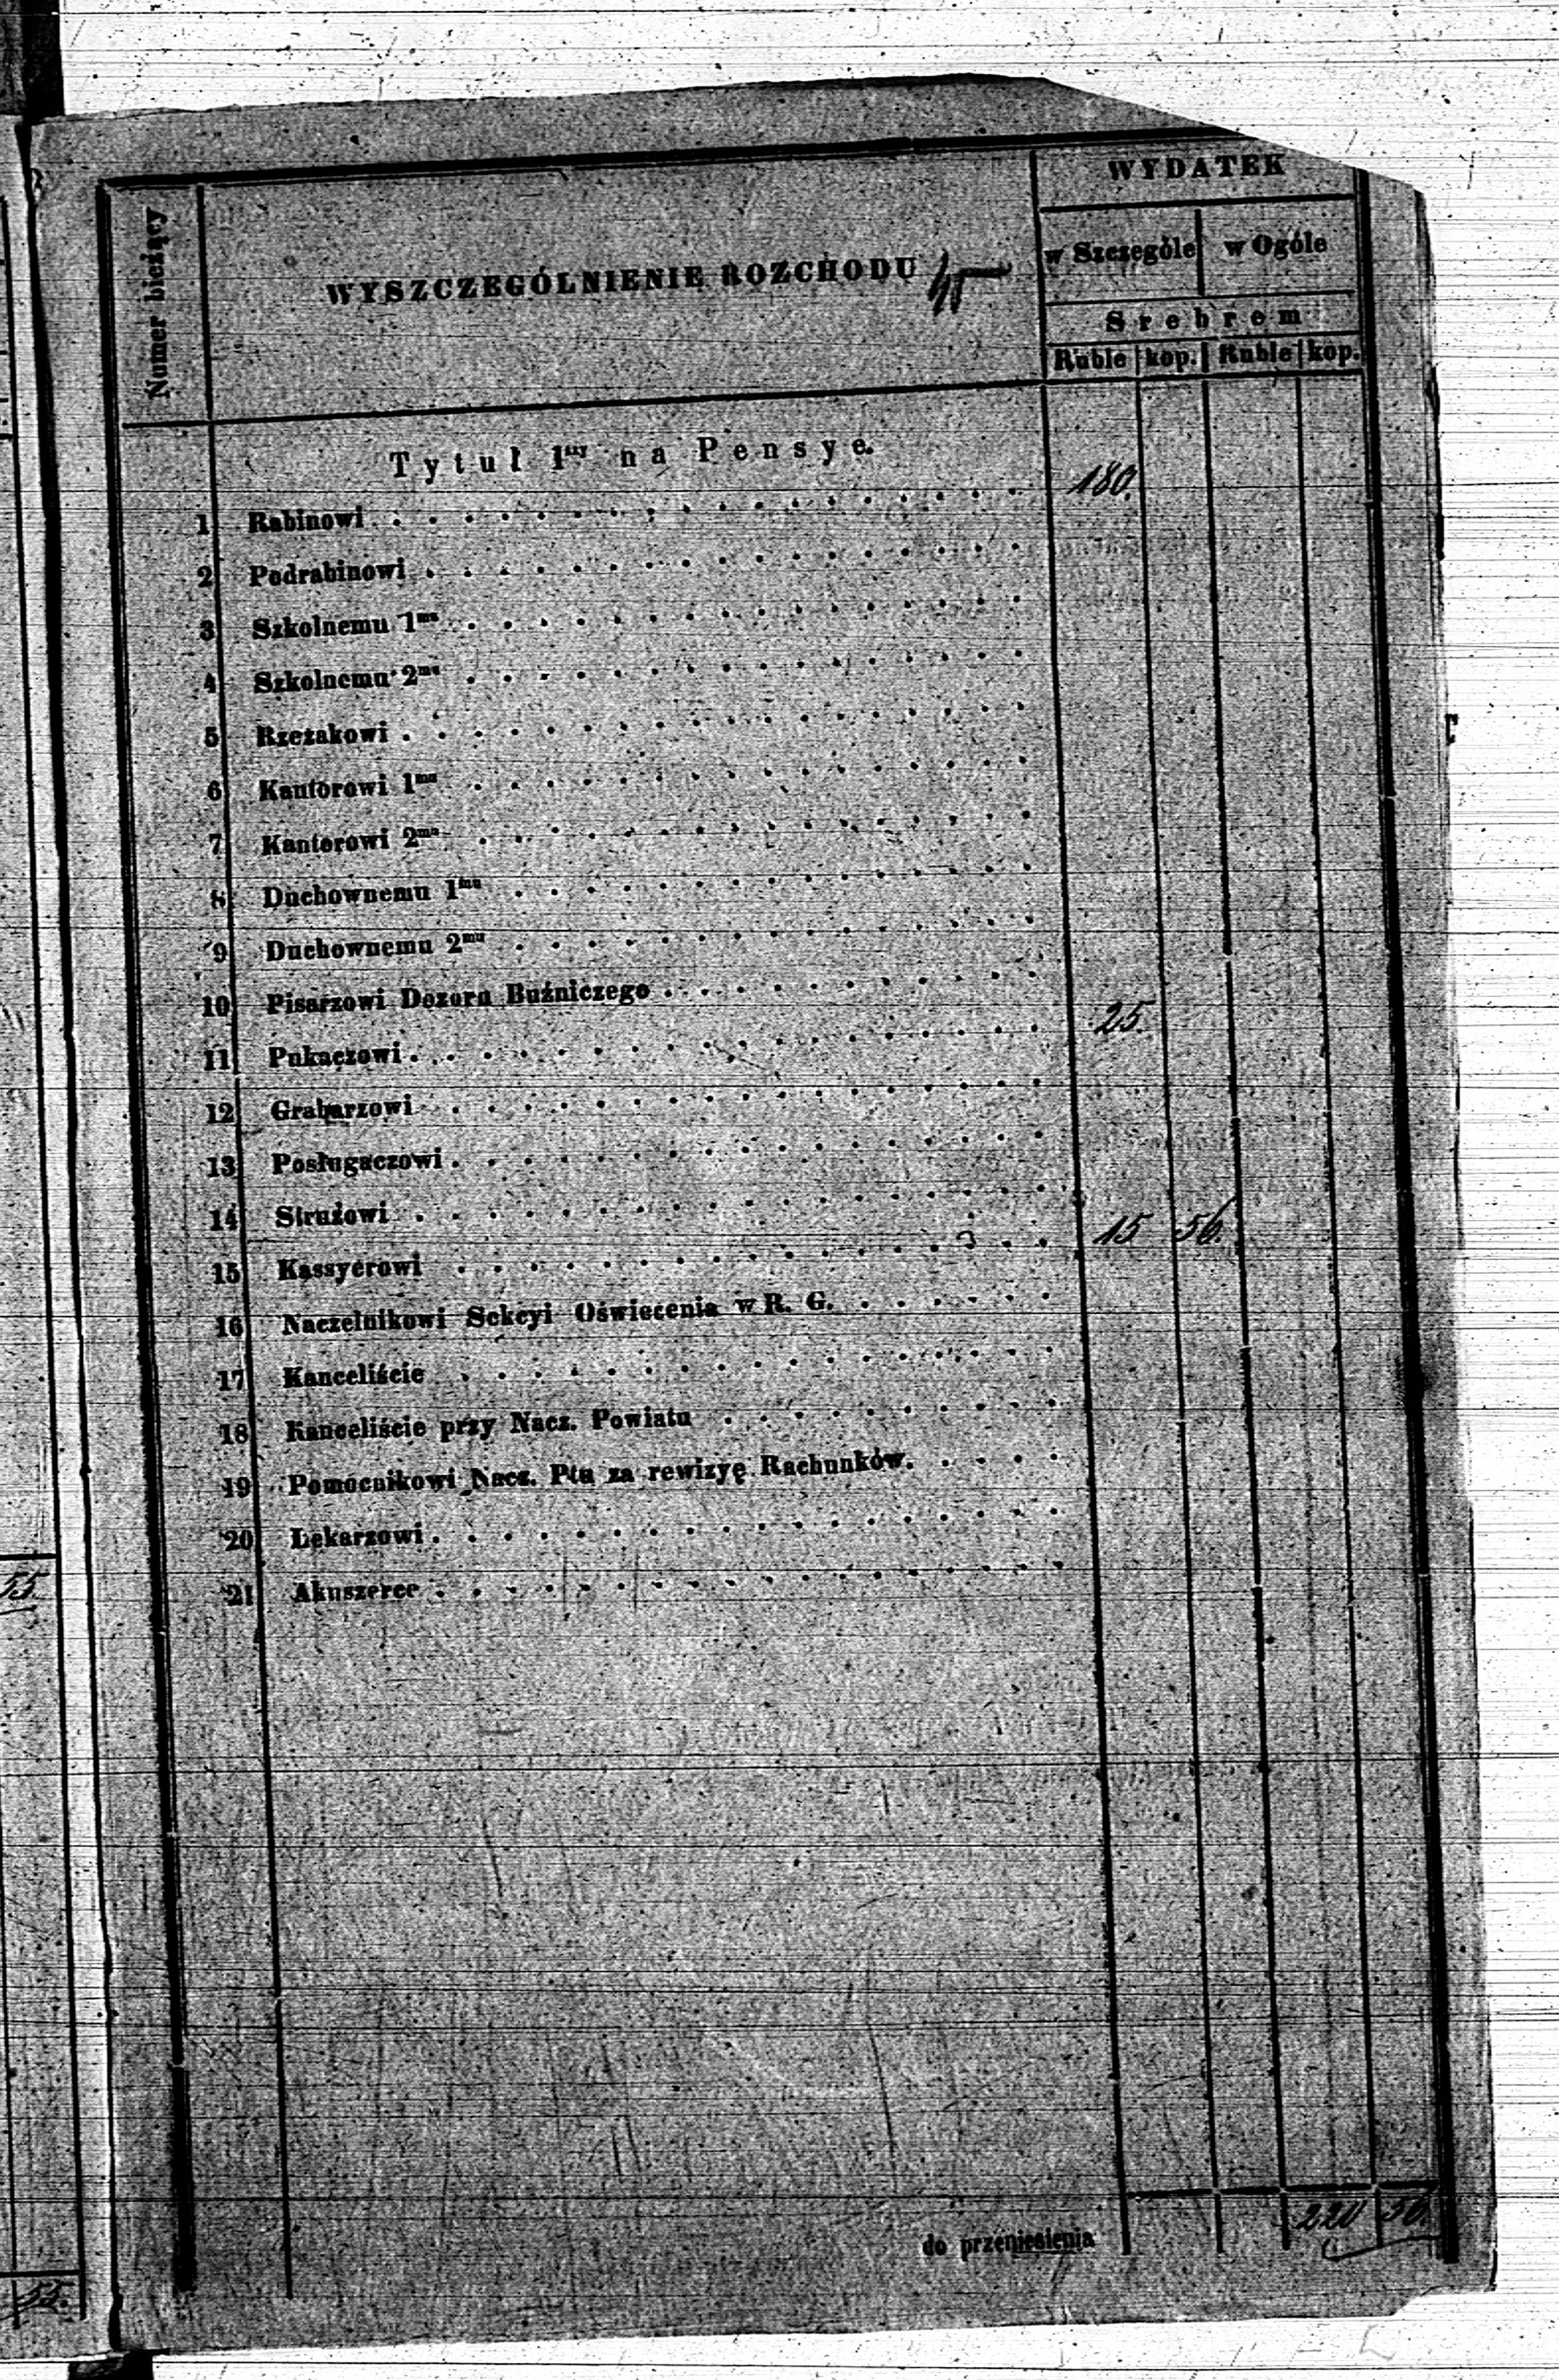 WYDATEK
Numer bieżący
WYSZCZEGÓLNIENIE ROZCHODU
w Szczególe w Ogóle
Srebrem
Ruble kop. Ruble kop.
Tytuł 1ny na Pensye.
1 Rabinowi . . . . . 180.
2 Podrabinowi . . . . .
3 Szkolnemu 1mu . . . . .
4 Szkolnemu 2mu . . . . .
5 Rzezakowi . . . . .
6 Kantorowi 1mu . . . . .
7 Kantorowi 2mu . . . . .
8 Duchownemu 1mu . . . . .
9 Duchownemu 2mu . . . . .
10 Pisarzowi Dozoru Buźniczego . . . . .
11 Pukaczowi . . . . . 25.
12 Grabarzowi . . . . .
13 Posługaczowi . . . . .
14 Strużowi . . . . .
15 Kassyerowi . . . . . 15 56.
16 Naczelnikowi Sekcyi Oświecenia w R. G. . . . . .
17 Kanceliście . . . . .
18 Kanceliście przy Nacz. Powiatu . . . . .
19 Pomocnikowi Nacz. Ptu za rewizyę Rachunków. . . . .
20 Lekarzowi . . . . .
21 Akuszerce . . . . .
55
do przeniesienia 220 56.
55.